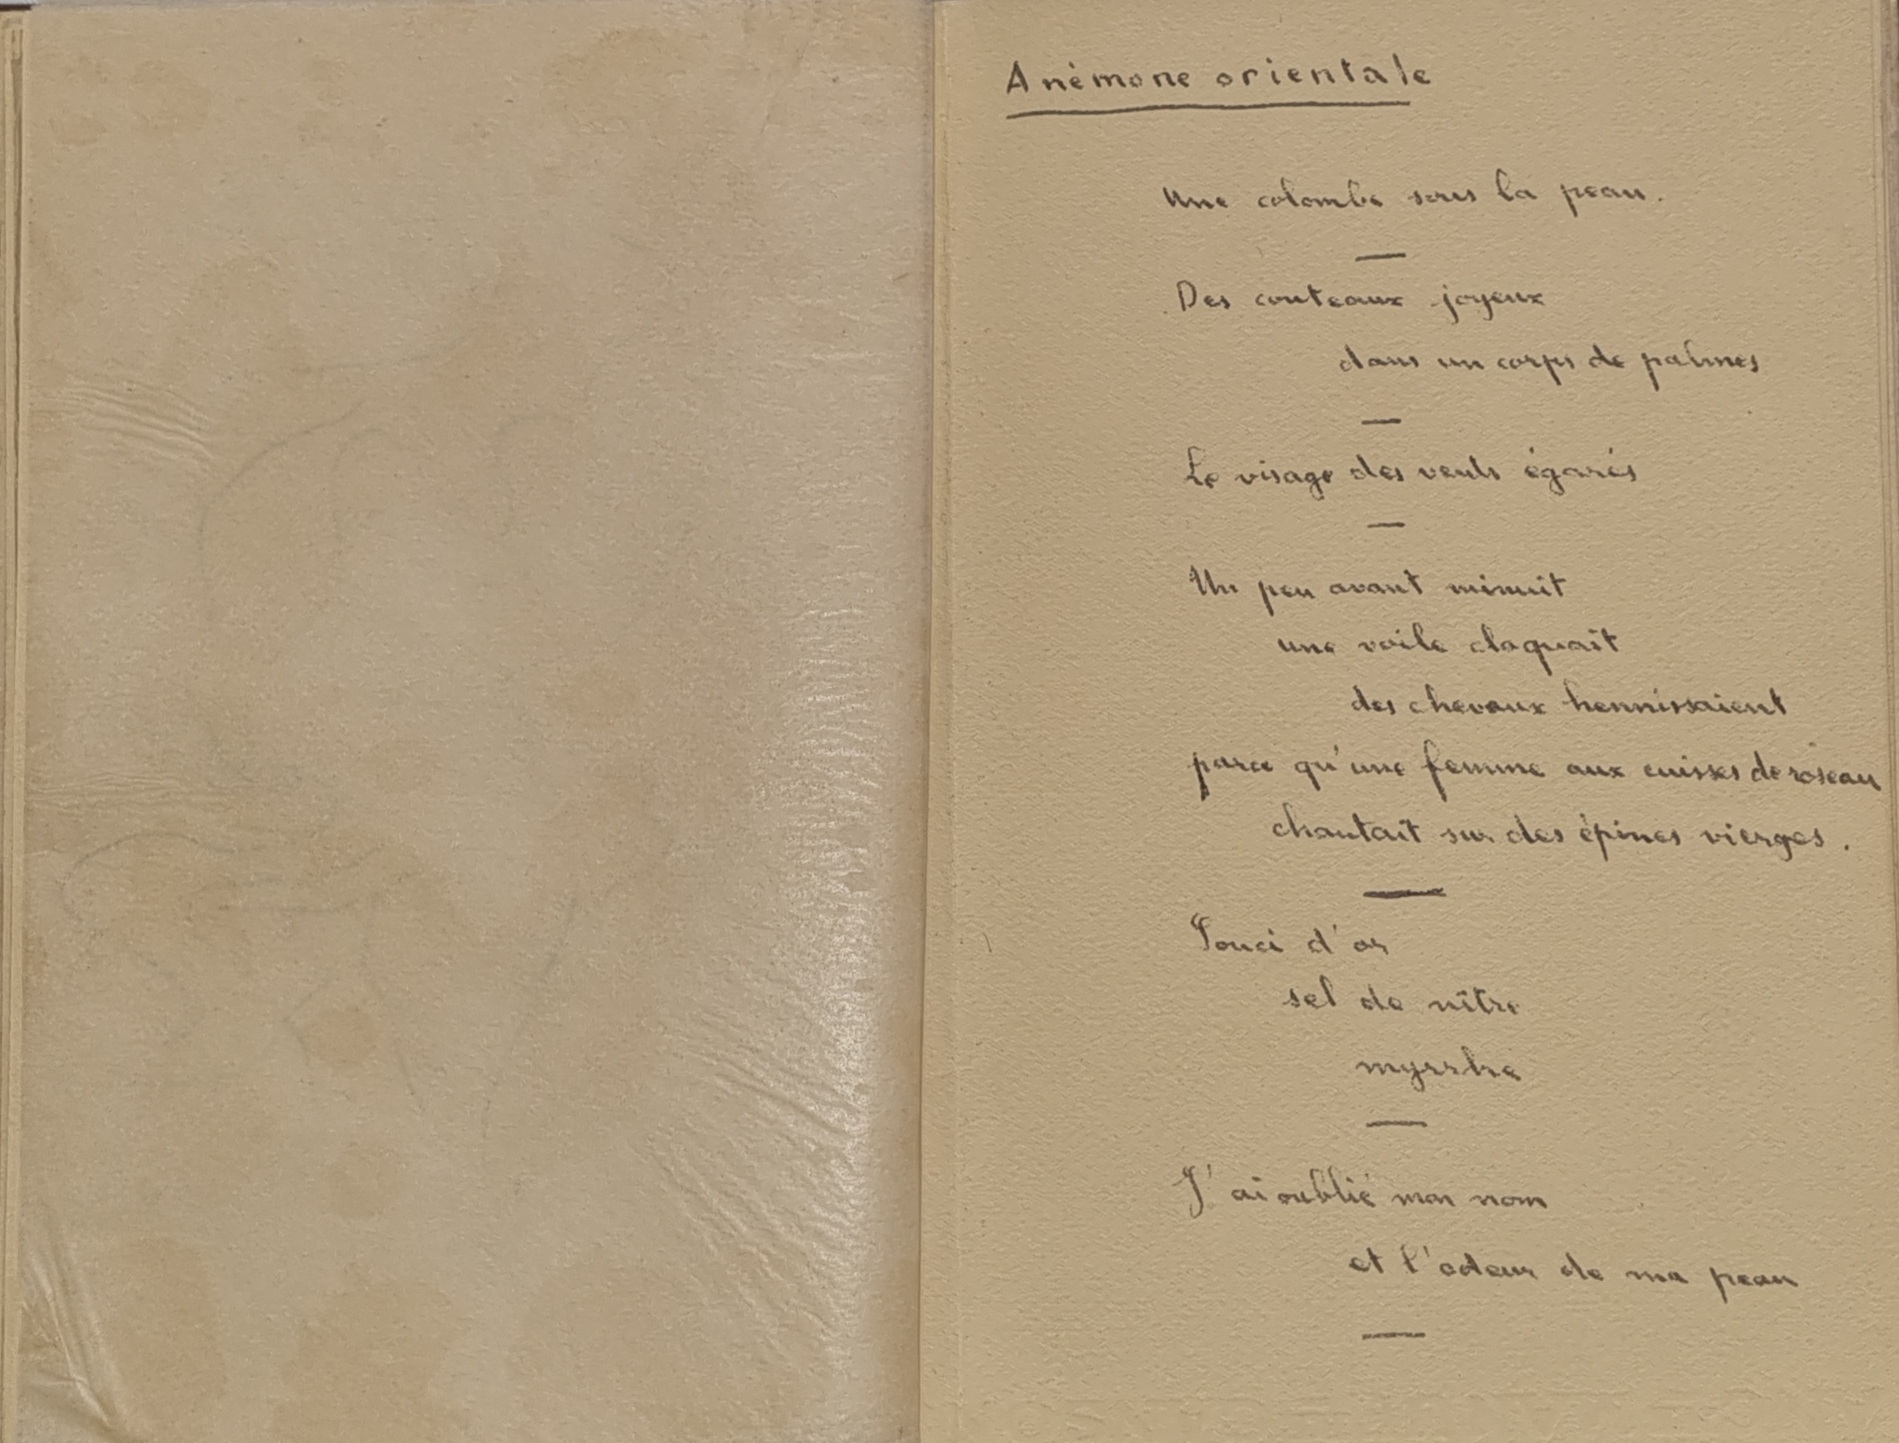 Anémone orientale
Une colombe sous la peau.
Des couteaux joyeux
dans un corps de palmes
Le visage des vents égarés
Un peu avant minuit
une voile claquait
des chevaux hennissaient
parce qu'une femme aux cuisses de roseau
chantait sur des épines vierges.
Souci d'or
sel de nître
myrrhe
J'ai oublié mon nom
et l'odeur de ma peau